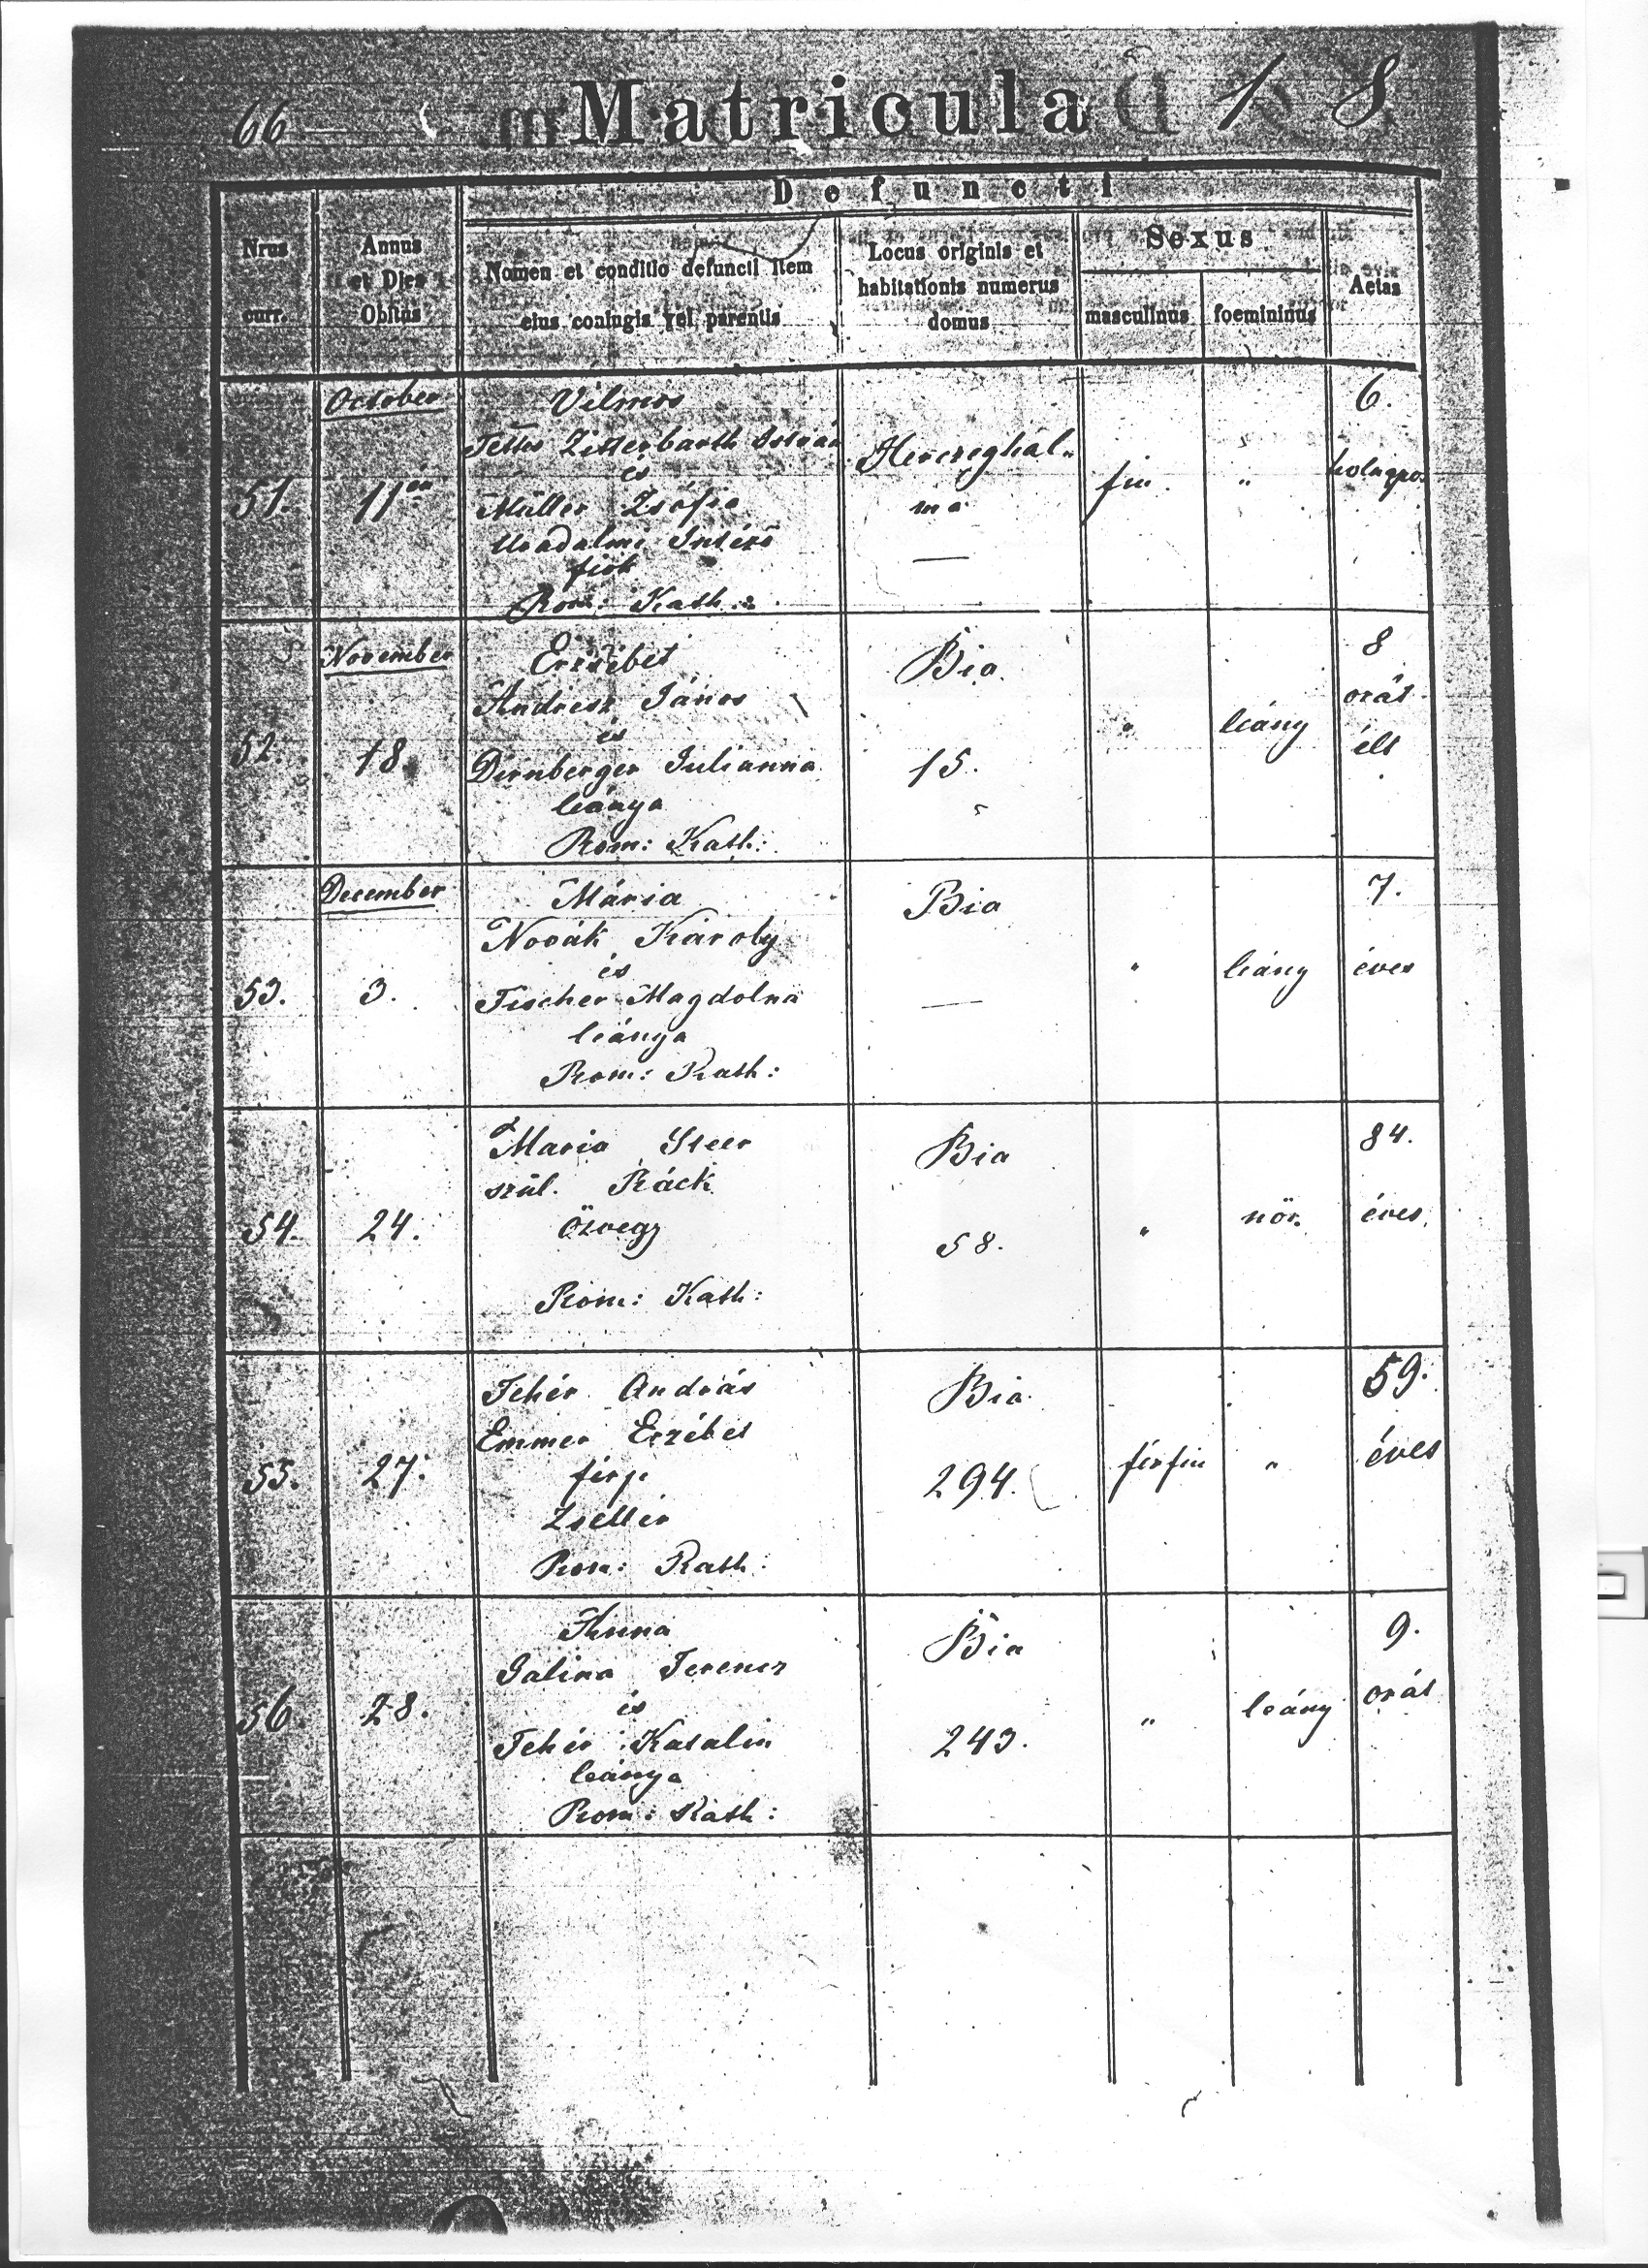 66 Matricula 1 8
Defuncti
Nrus
curr.
Annus
et Dies
Obitus
Nomen et conditio defuncti item
eius coniugis vel parentis
Locus originis et
habitationis numerus
domus
Sexus
masculinus
foemininus
Aetas
October
51.
11én
Vilmos
Zitterbarth István
és
Müller Zsófia
Uradalmi Intéző
fiok
Rom: Kath:
Herczeghal„
ma
—
fiu
„
6.
November
52.
18.
Erzsébet
Andresz János
és
Dirnberger Julianna
leánya
Rom: Kath:
Bia
15.
„
leány
8
orát
élt
December
53.
3.
Mária
Novák Károly
és
Fischer Magdolna
leánya
Rom: Kath:
Bia
—
„
leány
7.
éves
54.
24.
Maria Steer
szül. Ráck
özvegy
Rom: Kath:
Bia
58.
„
nör.
84.
éves
55.
27.
Fehér András
Emmer Erzébet
férje
Zsellér
Rom: Kath:
Bia
294.
férfiu
„
59.
éves
56.
28.
Anna
Galina Ferencz
és
Fehér Katalin
leánya
Rom: Kath:
Bia
243.
„
leány
9.
orát